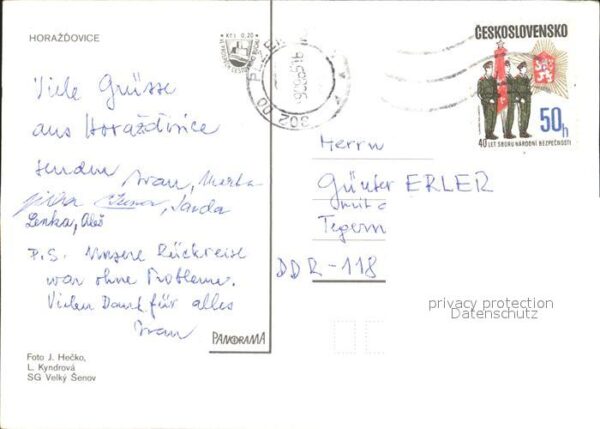 HORAŽĎOVICE
Kčs 0,20
ČESKOSLOVENSKO
50h
40 LET SBORU NÁRODNÍ BEZPEČNOSTI
Viele Grüsse
aus Horažďovice
senden
Ivan, Marta
Jarda
Lenka, Aleš
P.S. Unsere Rückreise
war ohne Probleme.
Vielen Dank für alles
Ivan
Herrn
Günter ERLER
Tegern
DDR-118
PANORAMA
Foto J. Hečko,
L. Kyndrová
SG Velký Šenov
privacy protection
Datenschutz